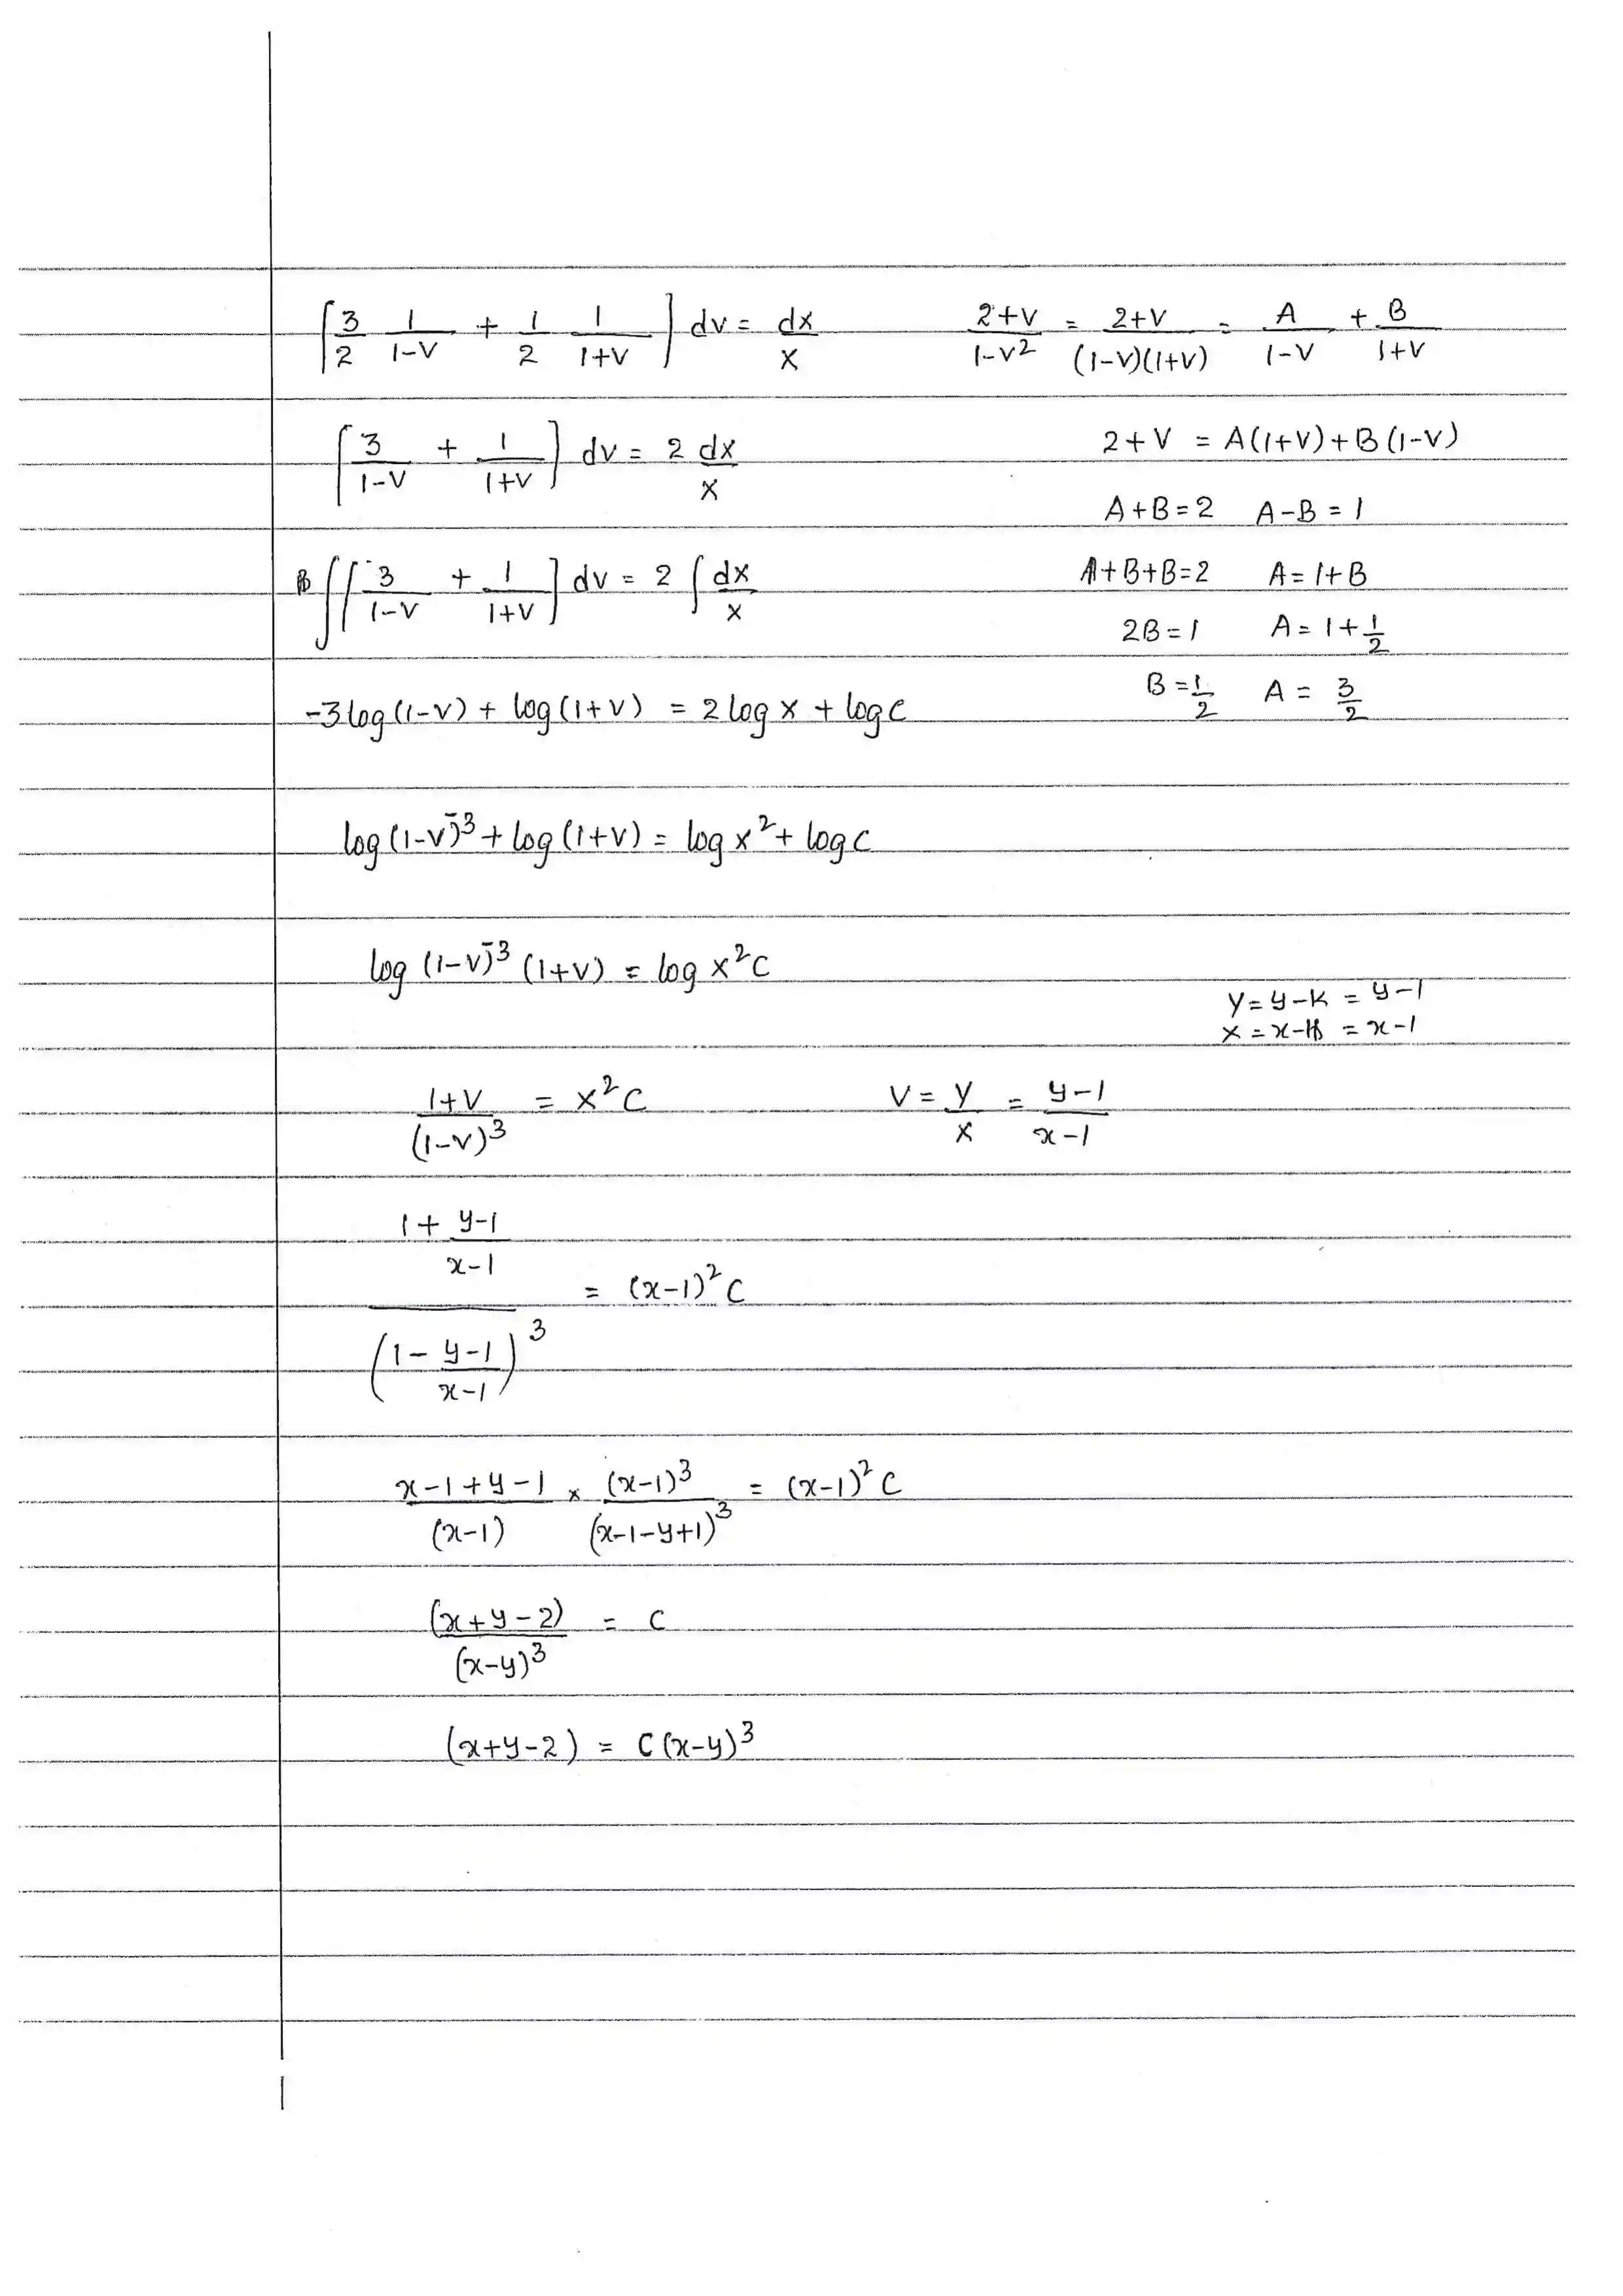 [3/2 1/(1-V) + 1/2 1/(1+V)] dv = dx/X
(2+V)/(1-V²) = (2+V)/((1-V)(1+V)) = A/(1-V) + B/(1+V)
[3/(1-V) + 1/(1+V)] dv = 2 dx/X
2+V = A(1+V)+B(1-V)
A+B=2 A-B=1
∫[3/(1-V) + 1/(1+V)] dv = 2 ∫ dx/X
1+B+B=2 A=1+B
2B=1 A=1+1/2
B=1/2 A=3/2
-3log(1-V) + log(1+V) = 2 log X + log C
log(1-V)⁻³ + log(1+V) = log X² + log C
log (1-V)⁻³ (1+V) = log X²C
Y=y-K = y-1
X=x-h = x-1
(1+V)/(1-V)³ = X²C
V = Y/X = (y-1)/(x-1)
(1 + (y-1)/(x-1))/(1 - (y-1)/(x-1))³ = (x-1)²C
(x-1+y-1)/(x-1) × (x-1)³/(x-1-y+1)³ = (x-1)²C
(x+y-2)/(x-y)³ = C
(x+y-2) = C(x-y)³